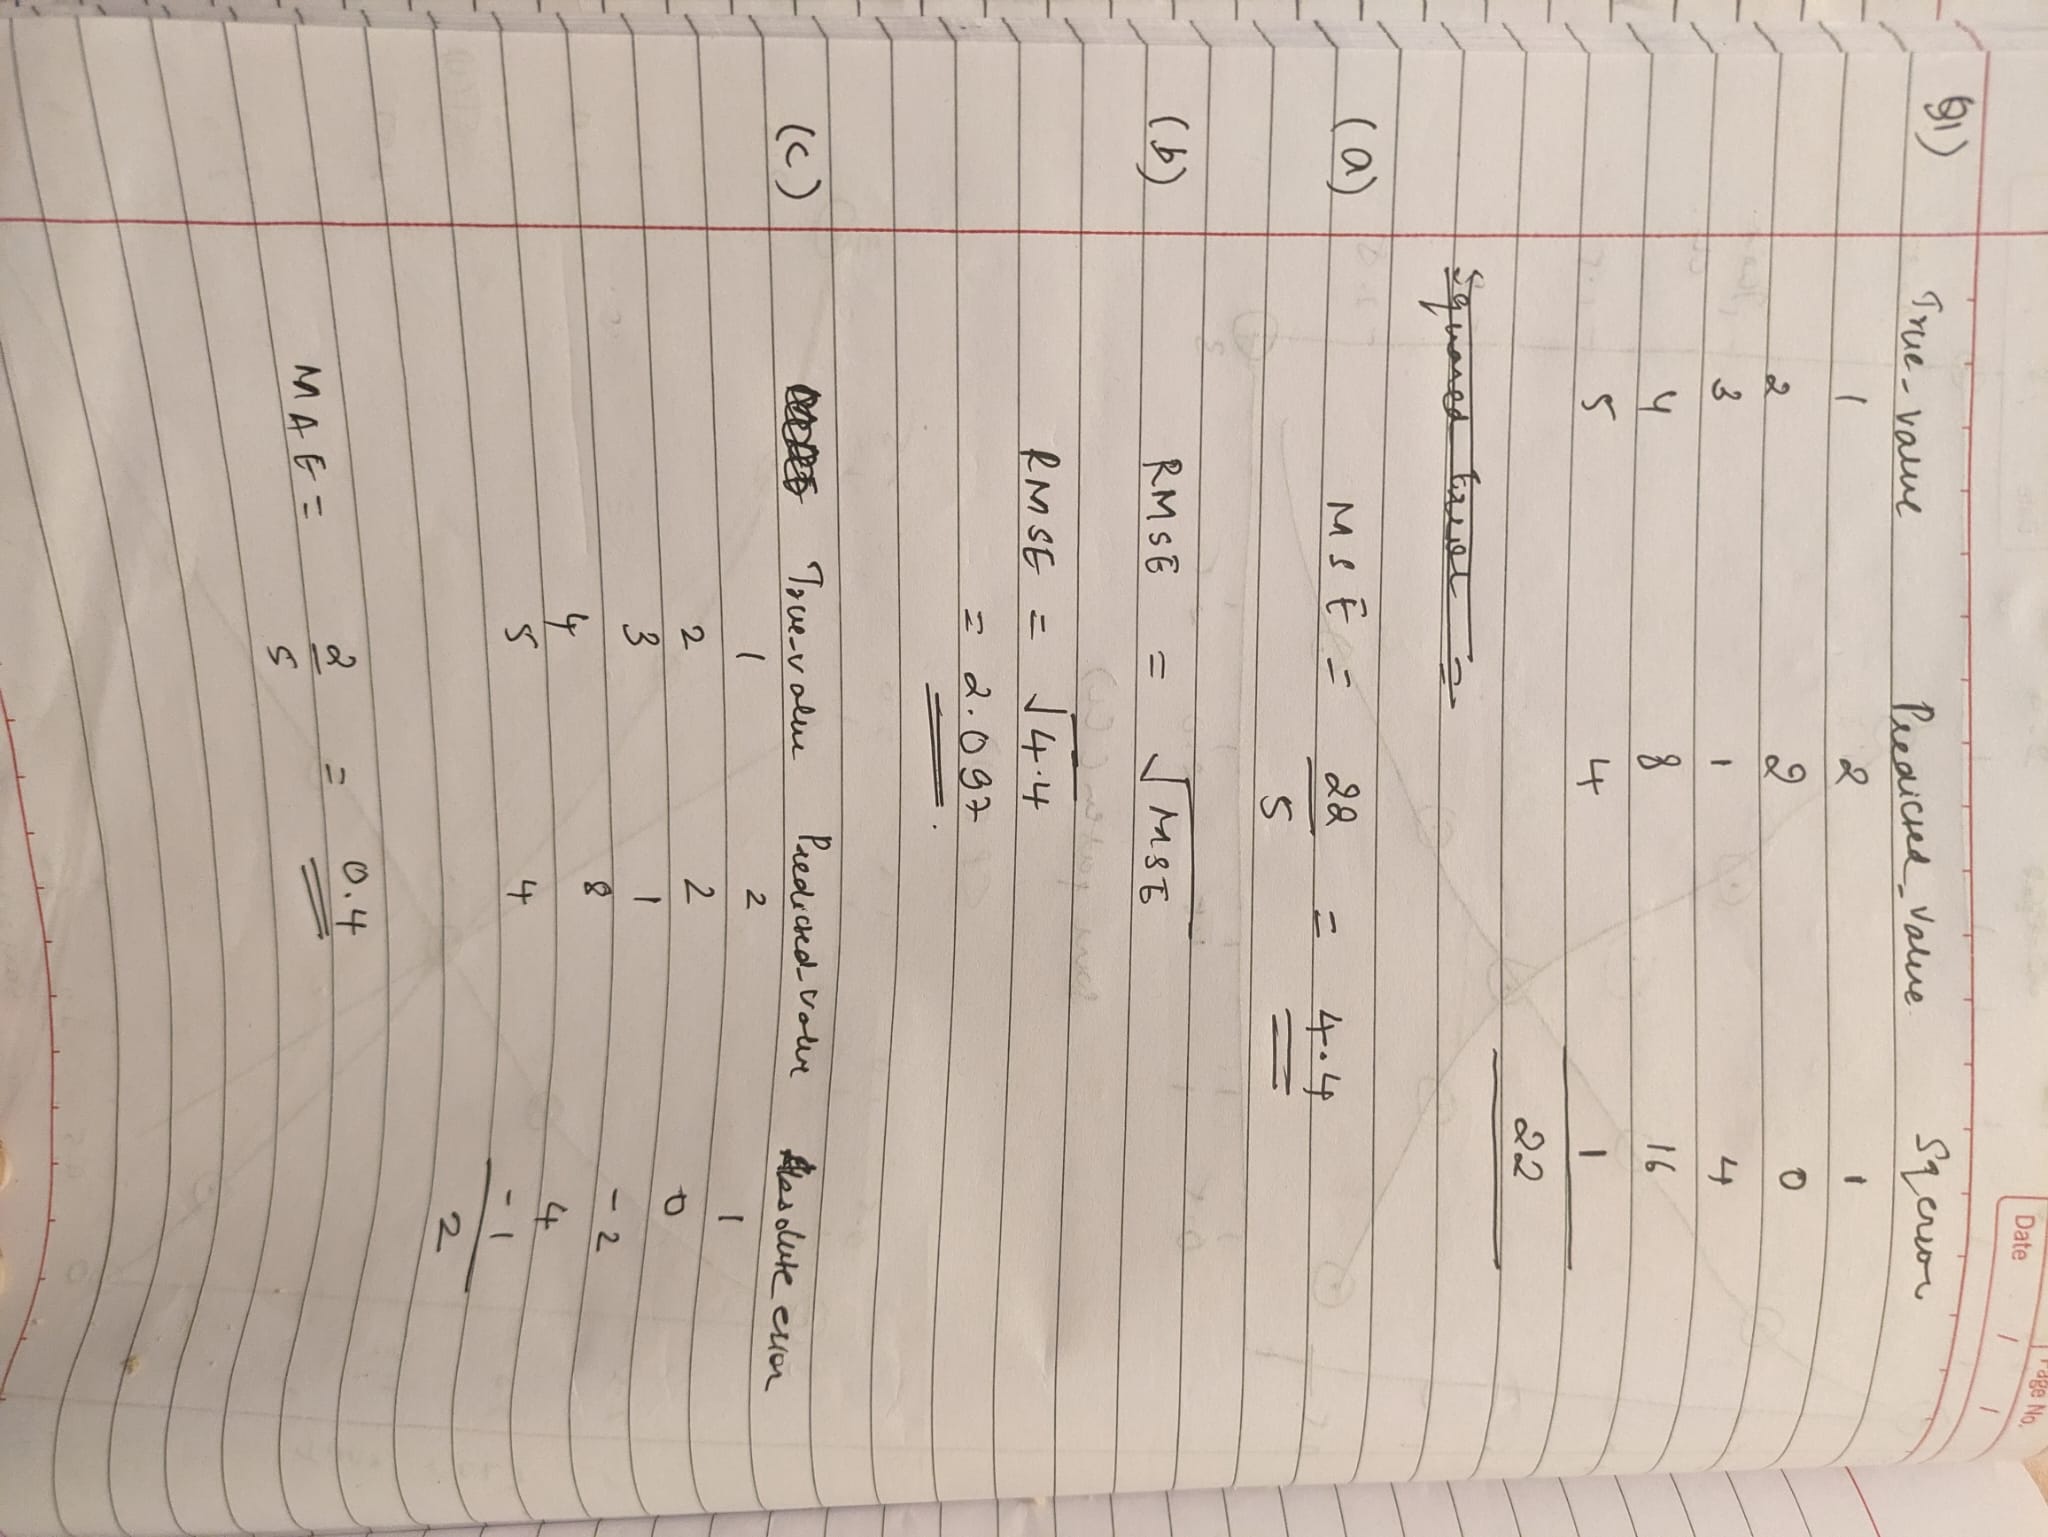 Date
Page No.
Q1)
True_value Predicted_value Sq error
1 2 1
2 2 0
3 1 4
4 8 16
5 4 1
22
Squared Error =
(a) MSE = 22/5 = 4.4
(b) RMSE = √MSE
RMSE = √4.4
= 2.097
(c) True_value Predicted_value Absolute error
1 2 1
2 2 0
3 1 -2
4 8 4
5 4 -1
2
MAE = 2/5 = 0.4